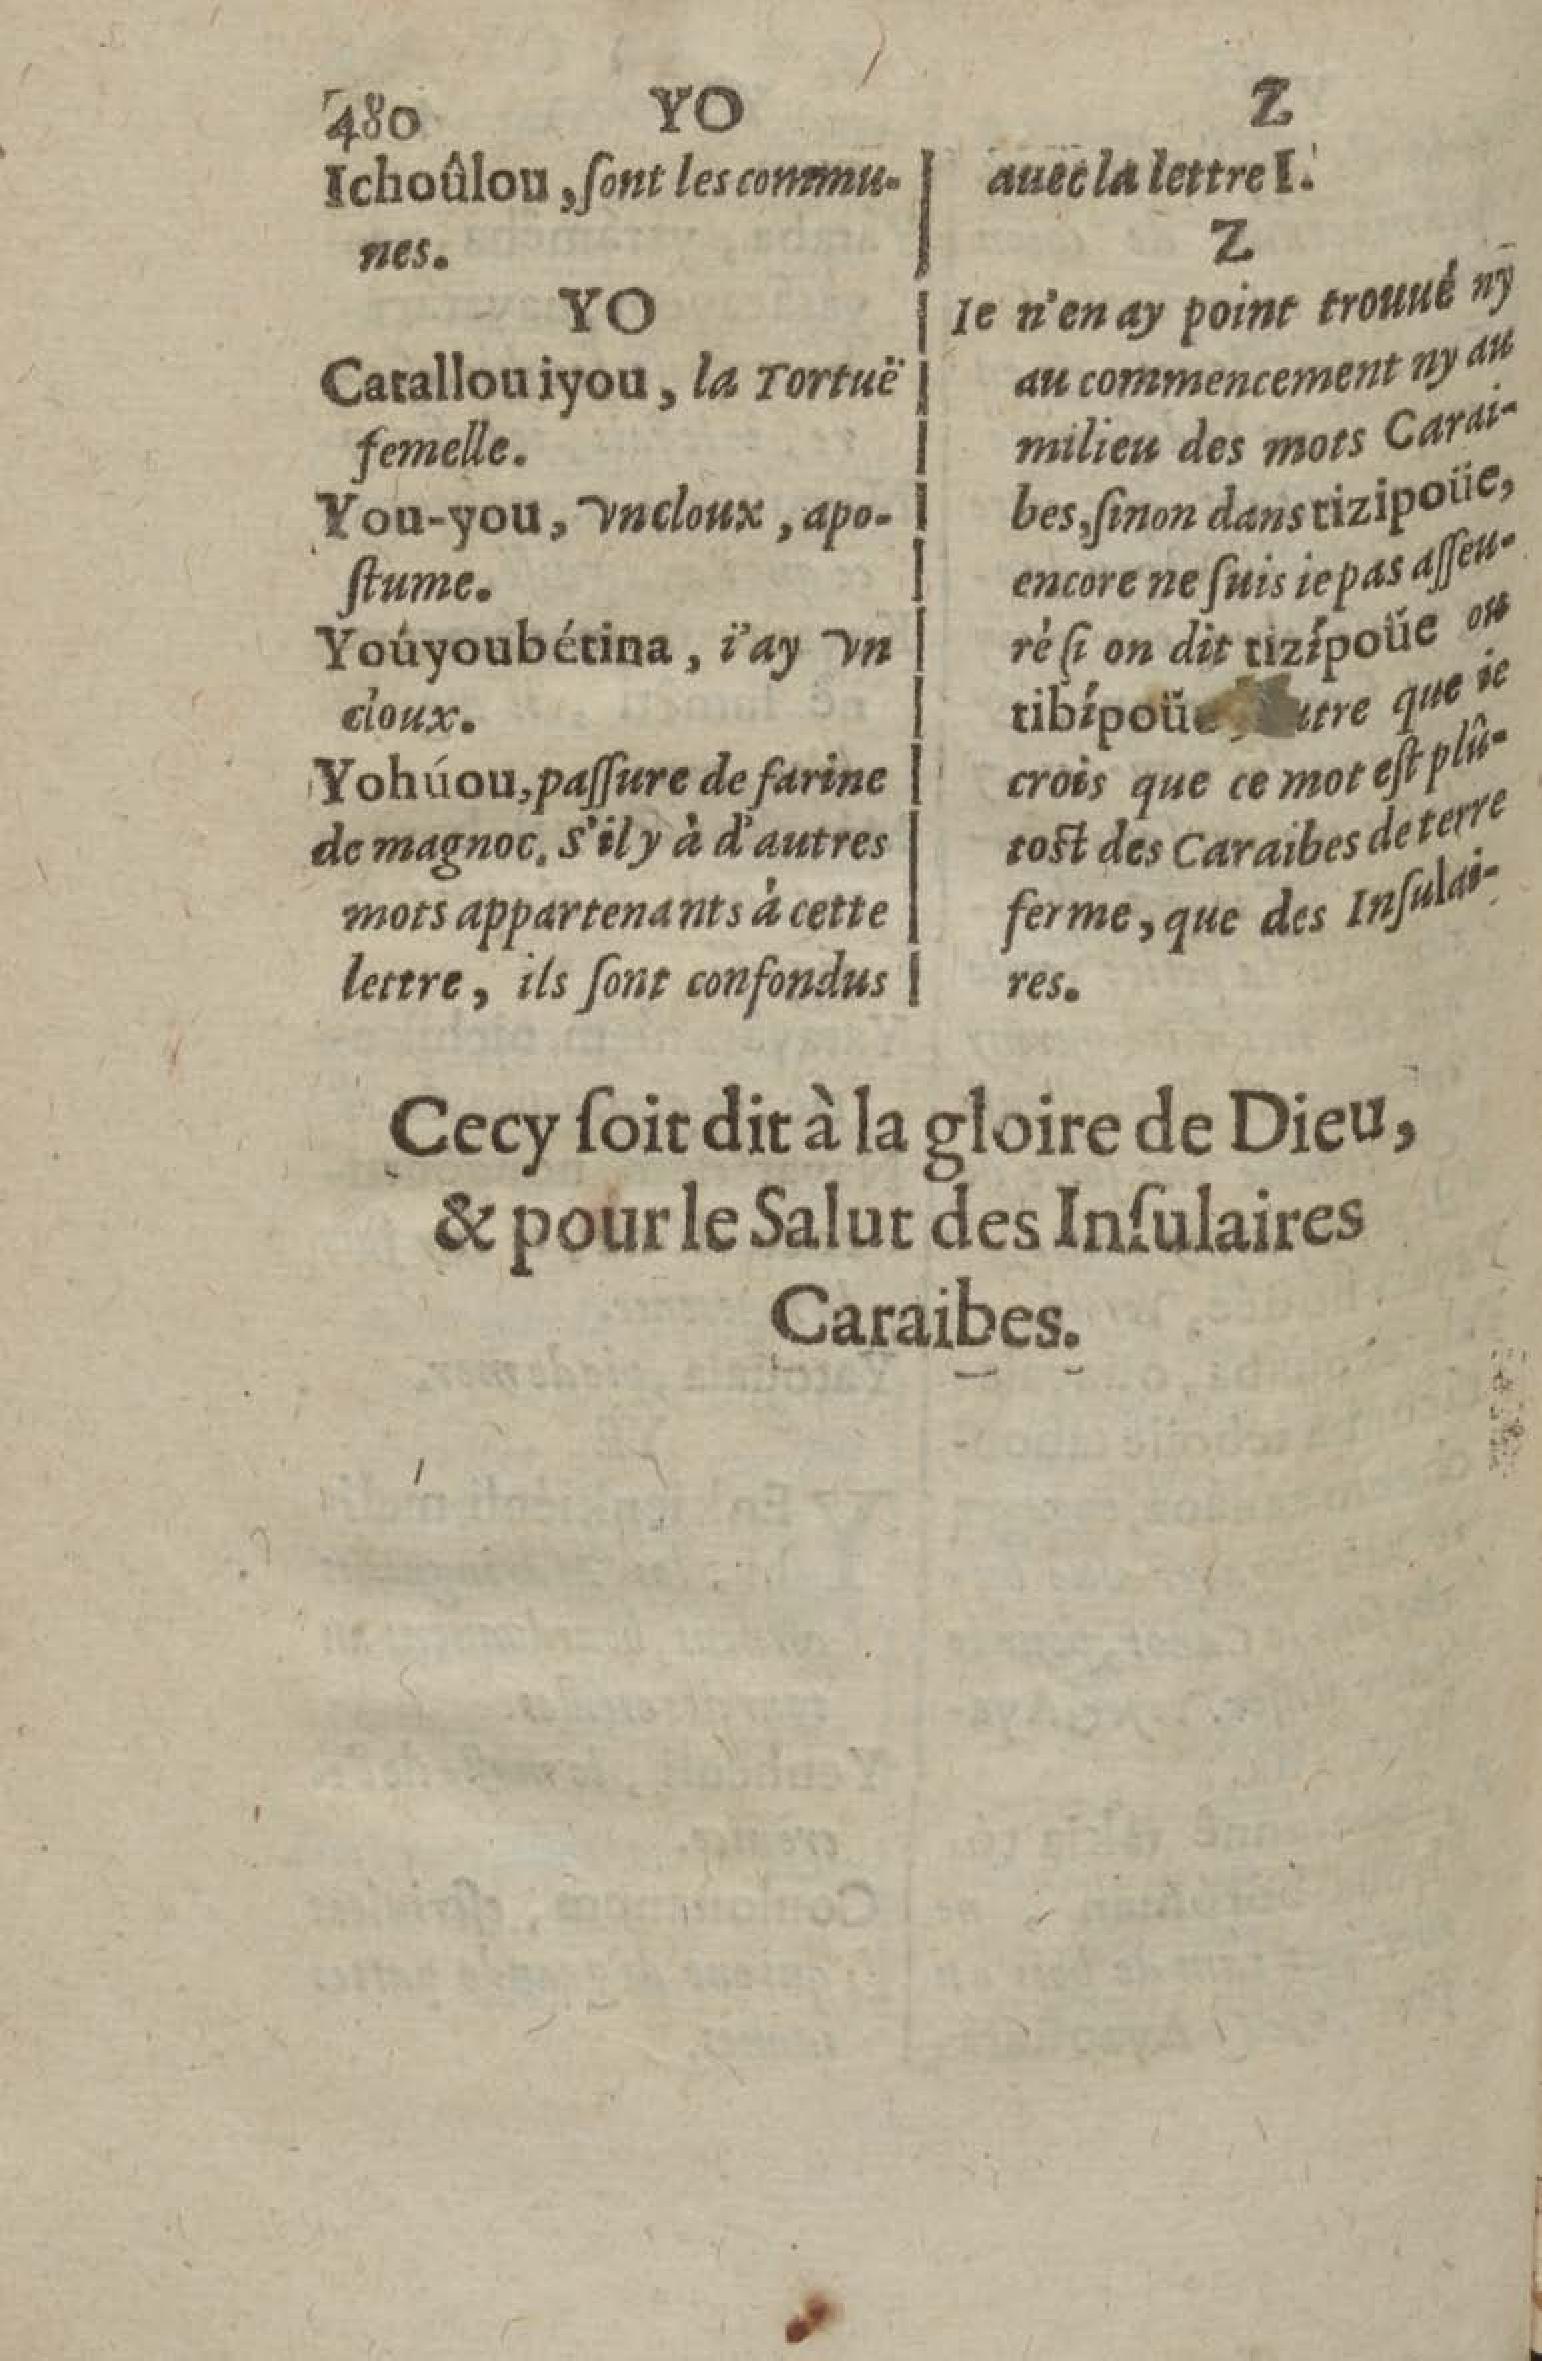 480 YO Z
Ichoûlou, ſont les commu-
nes.
YO
Catallou iyou, la Tortuë
femelle.
You-you, vn cloux, apo-
ſtume.
Yoúyoubétina, i'ay vn
cloux.
Yohúou, paſſure de farine
de magnoc. S'il y à d'autres
mots appartenants à cette
lettre, ils ſont confondus
auec la lettre I.
Z
Ie n'en ay point trouué ny
au commencement ny au
milieu des mots Carai-
bes, ſinon dans tizipoüe,
encore ne ſuis ie pas aſſeu-
rè ſi on dit tizípoüe ou
tibípoüe que ie
crois que ce mot eſt plû-
toſt des Caraibes de terre
ferme, que des Inſulai-
res.
Cecy ſoit dit à la gloire de Dieu,
& pour le Salut des Inſulaires
Caraibes.